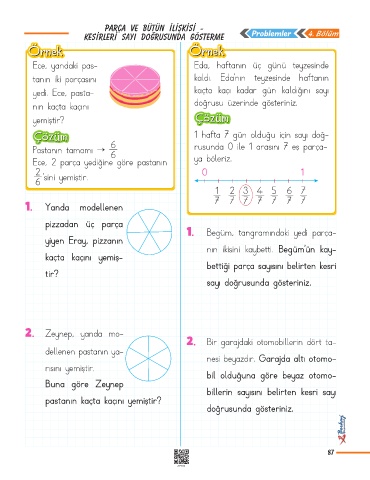 PARÇA VE BÜTÜN İLİŞKİSİ -
KESİRLERİ SAYI DOĞRUSUNDA GÖSTERME
Problemler
4. Bölüm
Örnek
Ece, yandaki pas-
tanın iki parçasını
yedi. Ece, pasta-
nın kaçta kaçını
yemiştir?
Çözüm
Pastanın tamamı → 6/6
Ece, 2 parça yediğine göre pastanın
2/6'sini yemiştir.
1. Yanda modellenen
pizzadan üç parça
yiyen Eray, pizzanın
kaçta kaçını yemiş-
tir?
2. Zeynep, yanda mo-
dellenen pastanın ya-
rısını yemiştir.
Buna göre Zeynep
pastanın kaçta kaçını yemiştir?
Örnek
Eda, haftanın üç günü teyzesinde
kaldı. Eda'nın teyzesinde haftanın
kaçta kaçı kadar gün kaldığını sayı
doğrusu üzerinde gösteriniz.
Çözüm
1 hafta 7 gün olduğu için sayı doğ-
rusunda 0 ile 1 arasını 7 eş parça-
ya böleriz.
0 1
1/7 2/7 3/7 4/7 5/7 6/7 7/7
1. Begüm, tangramındaki yedi parça-
nın ikisini kaybetti. Begüm'ün kay-
bettiği parça sayısını belirten kesri
sayı doğrusunda gösteriniz.
2. Bir garajdaki otomobillerin dört ta-
nesi beyazdır. Garajda altı otomo-
bil olduğuna göre beyaz otomo-
billerin sayısını belirten kesri sayı
doğrusunda gösteriniz.
87